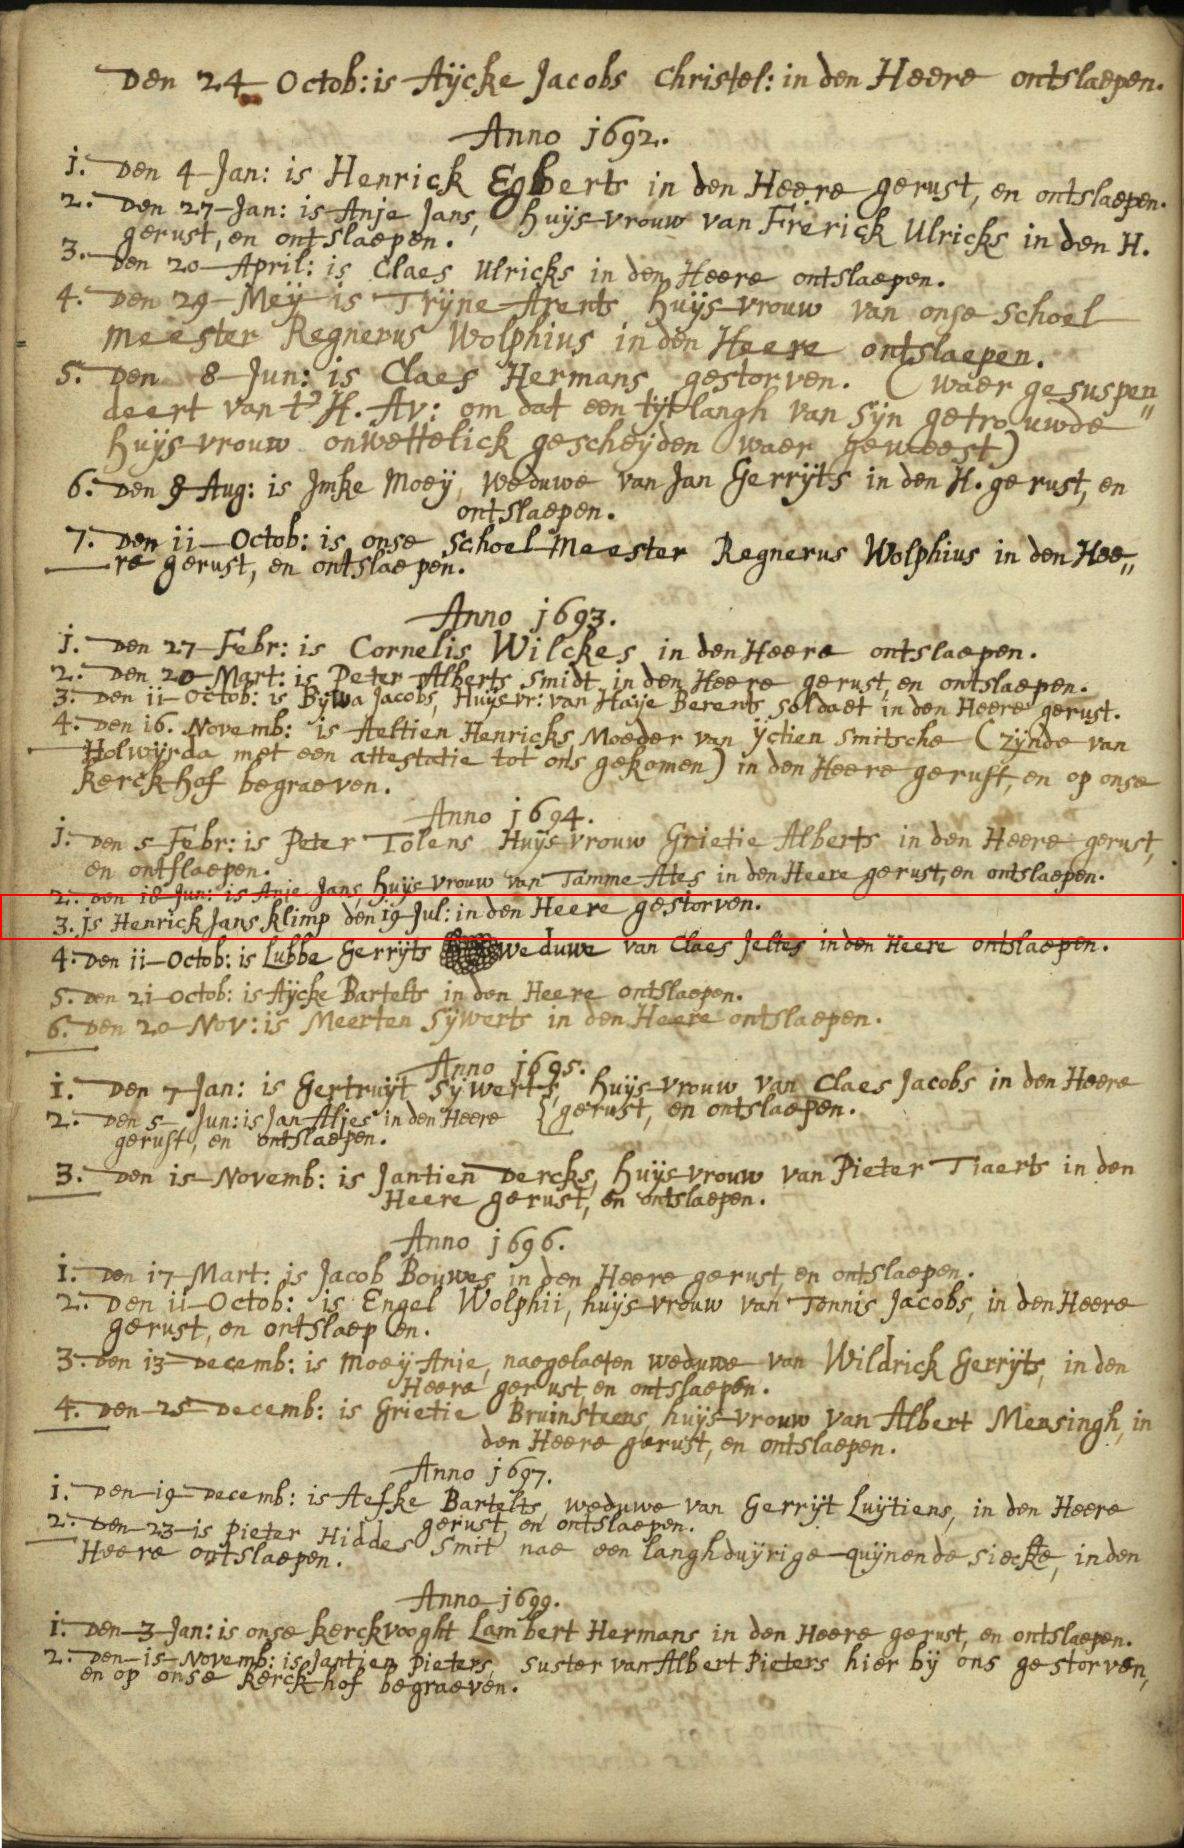 Den 24 Octob: is Aÿcke Jacobs Christel: in den Heere ontslaepen.
Anno 1692.
1. Den 4 Jan: is Henrick Egberts in den Heere gerust, en ontslaepen.
2. Den 27 Jan: is Anje Jans, huÿs-vrouw van Frerick Ulricks in den H.
gerust, en ontslaepen.
3. Den 20 April: is Claes Ulricks in den Heere ontslaepen.
4. Den 29 Meÿ is Trÿne Arents huÿs-vrouw van onse Schoel
meester Regnerus Wolphius in den Heere ontslaepen.
5. Den 8 Jun: is Claes Hermans gestorven. (waer gesuspen„
deert van t' H. Av: om dat een tÿt langh van sÿn getrouwde
huÿs-vrouw onwettelick gescheÿden waer geweest)
6. Den 8 Aug: is Imke Moeÿ, Weduwe van Jan Gerrÿts in den H. gerust, en
ontslaepen.
7. Den 11 Octob: is onse Schoel-Meester Regnerus Wolphius in den Hee„
re gerust, en ontslaepen.
Anno 1693.
1. Den 27 Febr: is Cornelis Wilckes in den Heere ontslaepen.
2. Den 20 Mart: is Peter Alberts Smidt in den Heere gerust, en ontslaepen.
3. Den 11 Octob: is Jacobs, Huÿs-vr: van Haÿe Berents soldaet in den Heere gerust.
4. Den 16. Novemb: is Aeltien Henricks Moeder van ÿctien Smitsche (zÿnde van
Holwÿrda met een attestatie tot ons gekomen) in den Heere gerust, en op onse
kerck hof begraeven.
Anno 1694.
1. Den 5 Febr: is Peter Tolens Huÿs-vrouw Grietie Alberts in den Heere gerust,
en ontslaepen.
2. Den 18 Jun: is Anje Jans, huÿs vrouw van Tamme Ates in den Heere gerust, en ontslaepen.
3. Is Henrick Jans Klimp den 19 Jul: in den Heere gestorven.
4. Den 11 Octob: is Lubbe Gerrÿts weduwe van Claes Jeltes in den Heere ontslaepen.
5. Den 21 Octob: is Aÿcke Bartelts in den Heere ontslaepen.
6. Den 20 Nov: is Meerten Sÿwerts in den Heere ontslaepen.
Anno 1695.
1. Den 7 Jan: is Gertruÿt Sÿwerts, huÿs-vrouw van Claes Jacobs in den Heere
gerust, en ontslaepen.
2. Den 5 Jun: is Jan Atjes in den Heere
gerust, en ontslaepen.
3. Den 15 Novemb: is Jantien Dercks, huÿs-vrouw van Pieter Tiaerts in den
Heere gerust, en ontslaepen.
Anno 1696.
1. Den 17 Mart: is Jacob Bouwes in den Heere gerust, en ontslaepen.
2. Den 11 Octob: is Engel Wolphii, huÿs-vrouw van Tonnis Jacobs, in den Heere
gerust, en ontslaepen.
3. Den 13 Decemb: is Moeÿ Anje, naegelaeten weduwe van Wildrick Gerrÿts, in den
Heere gerust, en ontslaepen.
4. Den 25 Decemb: is Grietie Bruinsteens, huÿs-vrouw van Albert Mensingh, in
den Heere gerust, en ontslaepen.
Anno 1697.
1. Den 19 Decemb: is Aefke Bartelts, weduwe van Gerrÿt Luÿtiens, in den Heere
gerust, en ontslaepen.
2. Den 23 is Pieter Hiddes Smit nae een langhduÿrige quÿnende sieckte, in den
Heere ontslaepen.
Anno 1699.
1. Den 3 Jan: is onse kerckvooght Lambert Hermans in den Heere gerust, en ontslaepen.
2. Den 15 Novemb: is Jantien Pieters, suster van Albert Pieters hier bÿ ons gestorven,
en op onse kerck hof begraeven.